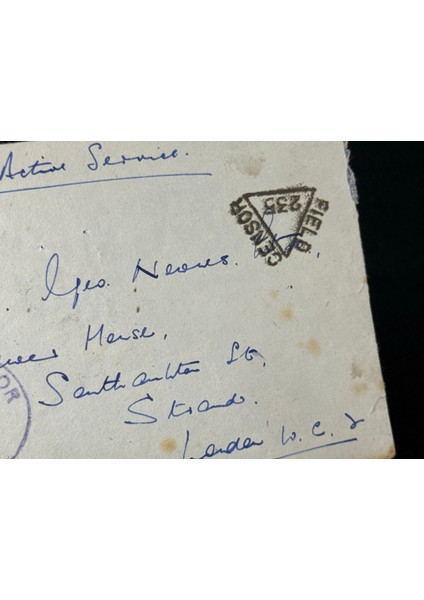 Active Service.
FIELD
CENSOR
235
Geo. Newnes
House,
Southampton St,
Strand.
London W. C. 2
OR